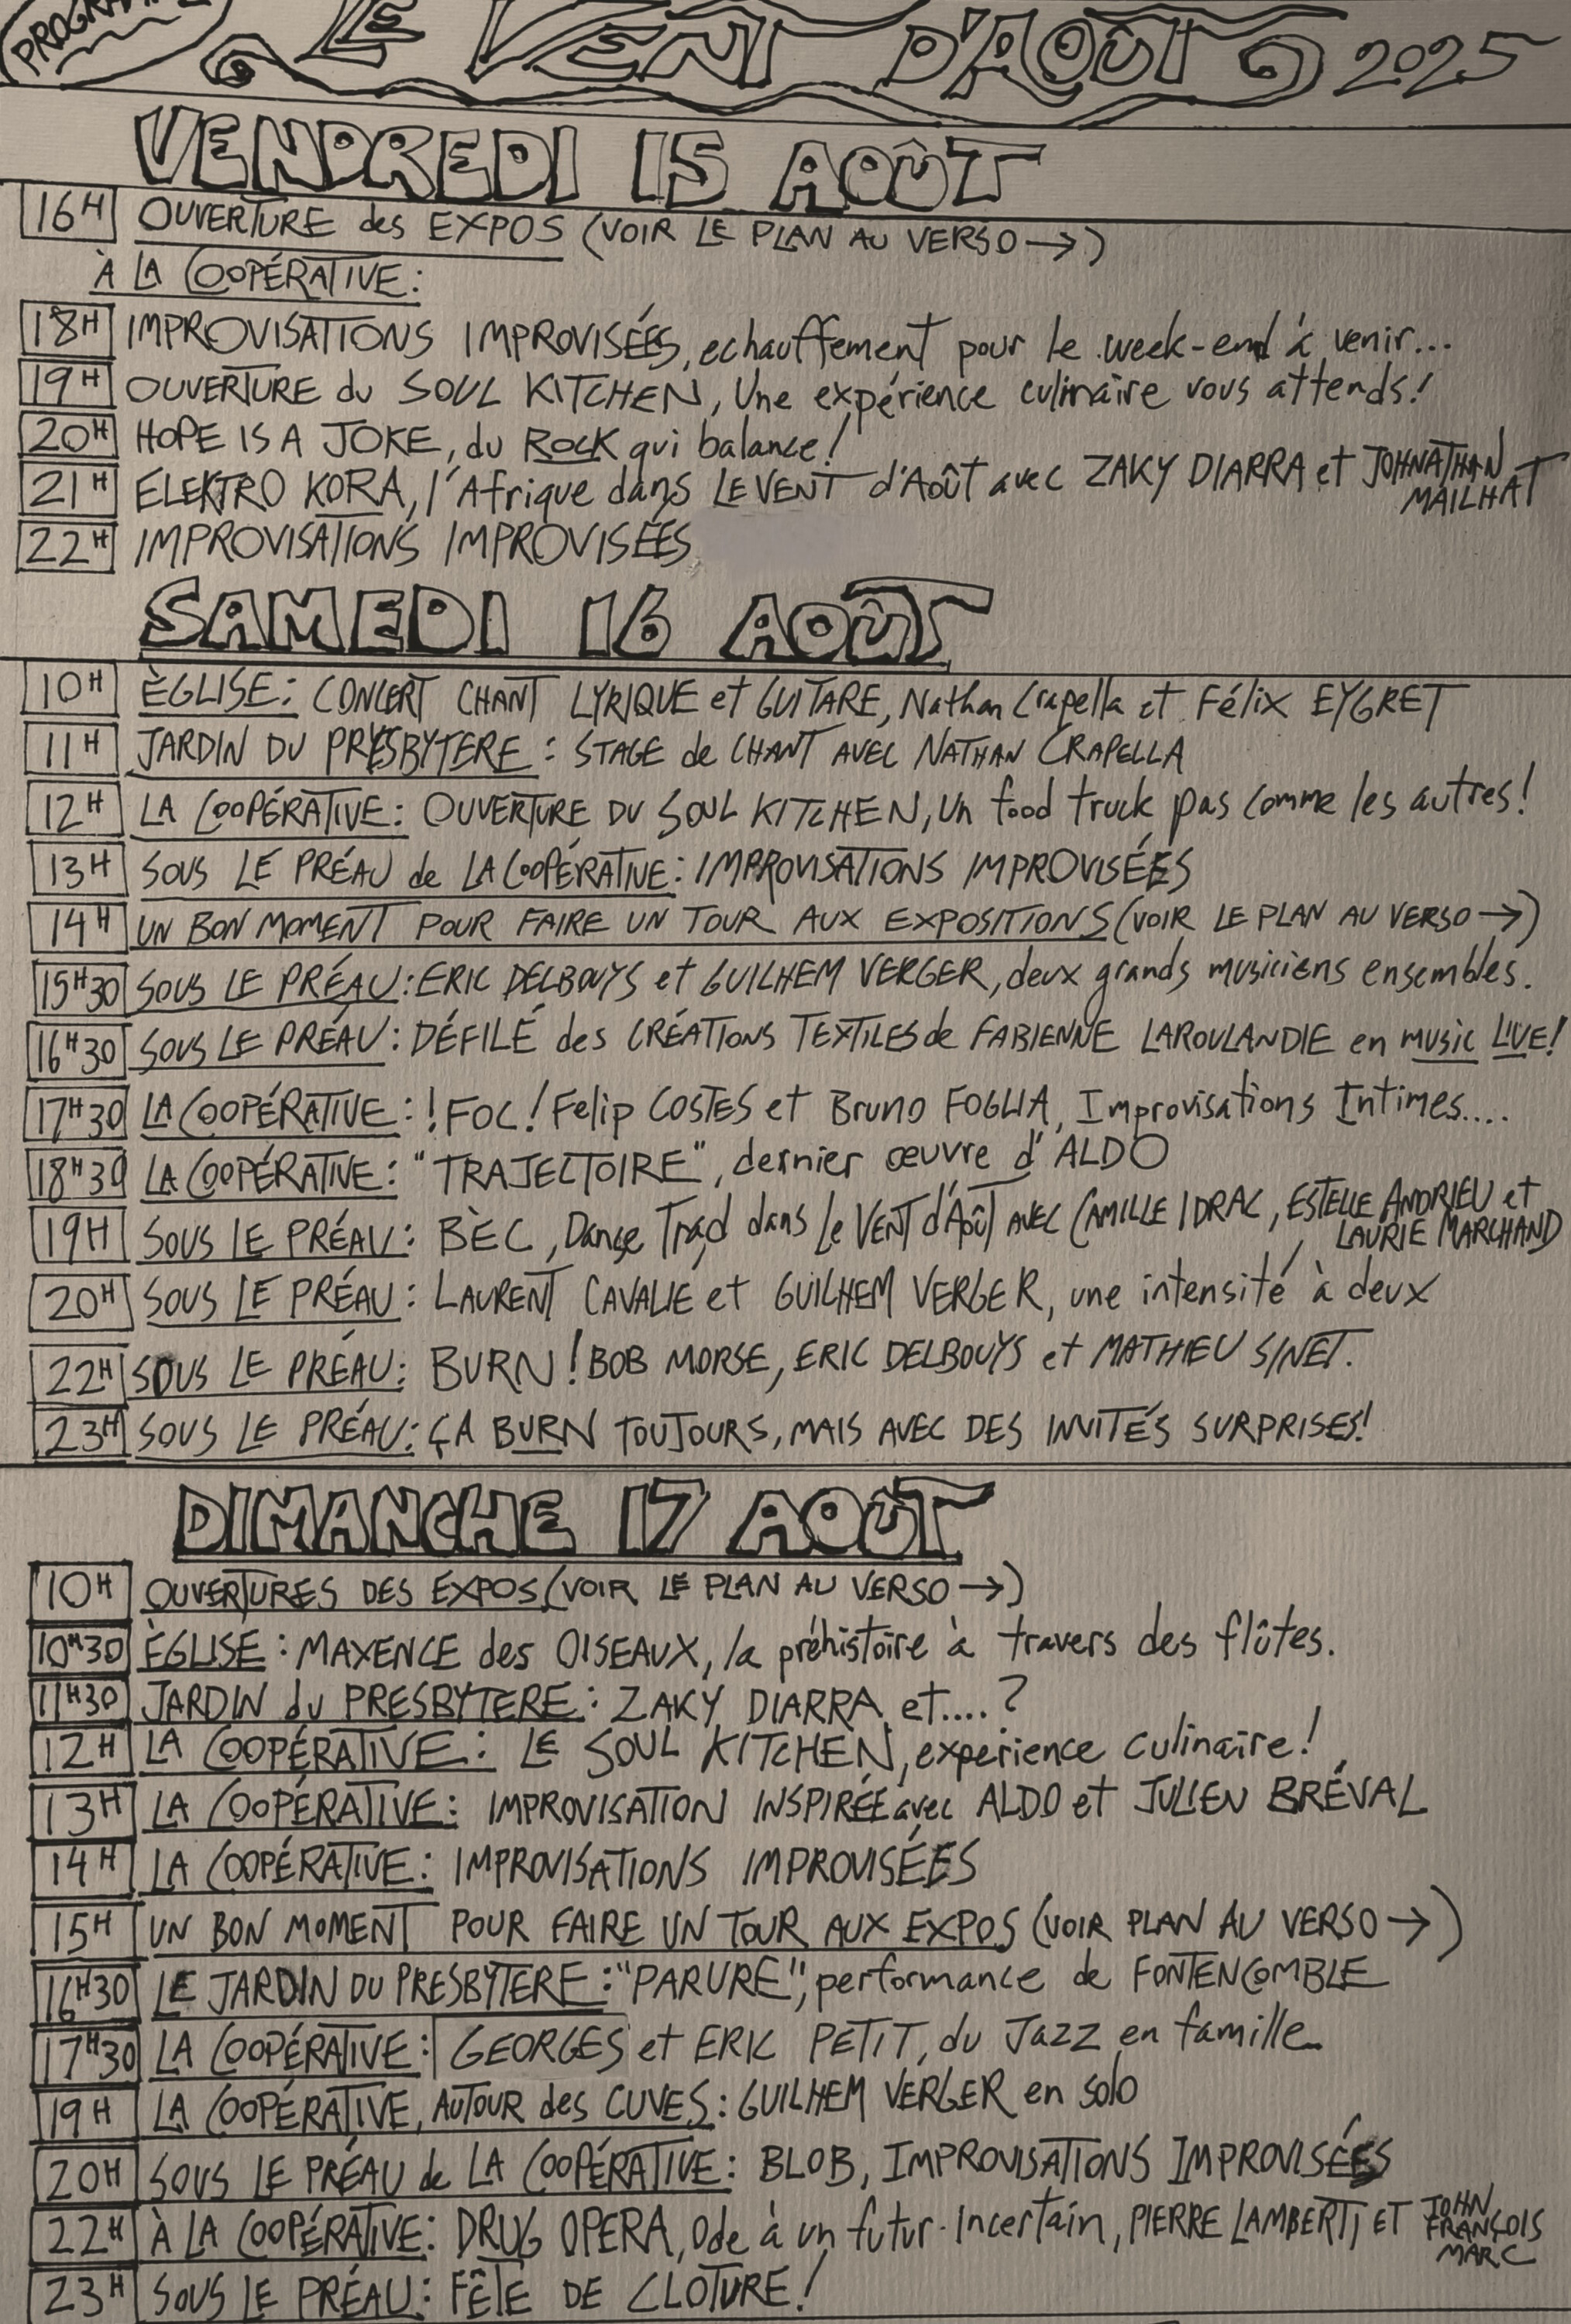 PROGRAMME
LE VENT D'AOÛT 2025
VENDREDI 15 AOÛT
16H OUVERTURE des EXPOS (VOIR LE PLAN AU VERSO →)
À LA COOPÉRATIVE:
18H IMPROVISATIONS IMPROVISÉES, echauffement pour le week-end à venir...
19H OUVERTURE du SOUL KITCHEN, Une expérience culinaire vous attends!
20H HOPE IS A JOKE, du ROCK qui balance!
21H ELEKTRO KORA, l'Afrique dans LE VENT d'Août avec ZAKY DIARRA et JOHNATHAN
MAILHAT
22H IMPROVISATIONS IMPROVISÉES
SAMEDI 16 AOÛT
10H ÈGLISE: CONCERT CHANT LYRIQUE et GUITARE, Nathan Crapella et Félix EYGRET
11H JARDIN DU PRESBYTERE: STAGE de CHANT AVEC NATHAN CRAPELLA
12H LA COOPÉRATIVE: OUVERTURE DU SOUL KITCHEN, Un food truck pas comme les autres!
13H SOUS LE PRÉAU de LA COOPÉRATIVE: IMPROVISATIONS IMPROVISÉES
14H UN BON MOMENT POUR FAIRE UN TOUR AUX EXPOSITIONS (VOIR LE PLAN AU VERSO →)
15H30 SOUS LE PRÉAU: ERIC DELBOUYS et GUILHEM VERGER, deux grands musiciens ensembles.
16H30 SOUS LE PRÉAU: DÉFILÉ des CRÉATIONS TEXTILES de FABIENNE LAROULANDIE en music LIVE!
17H30 LA COOPÉRATIVE: ! FOC! Felip COSTES et Bruno FOGLIA, Improvisations Intimes....
18H30 LA COOPÉRATIVE: "TRAJECTOIRE", dernier œuvre d'ALDO
19H SOUS LE PRÉAU: BÈC, Danse Trad dans Le VENT d'Août AVEC CAMILLE IDRAC, ESTELLE ANDRIEU et
LAURIE MARCHAND
20H SOUS LE PRÉAU: LAURENT CAVALIE et GUILHEM VERGER, une intensité à deux
22H SOUS LE PRÉAU: BURN! BOB MORSE, ERIC DELBOUYS et MATHIEU SINET.
23H SOUS LE PRÉAU: ÇA BURN TOUJOURS, MAIS AVEC DES INVITÉS SURPRISES!
DIMANCHE 17 AOÛT
10H OUVERTURES DES EXPOS (VOIR LE PLAN AU VERSO →)
10H30 ÈGLISE: MAXENCE des OISEAUX, la préhistoire à travers des flûtes.
11H30 JARDIN du PRESBYTERE: ZAKY DIARRA et....?
12H LA COOPÉRATIVE: LE SOUL KITCHEN, experience culinaire!
13H LA COOPÉRATIVE: IMPROVISATION INSPIRÉE avec ALDO et JULIEN BRÉVAL
14H LA COOPÉRATIVE: IMPROVISATIONS IMPROVISÉES
15H UN BON MOMENT POUR FAIRE UN TOUR AUX EXPOS (VOIR PLAN AU VERSO →)
16H30 LE JARDIN DU PRESBYTERE: "PARURE", performance de FONTENCOMBLE
17H30 LA COOPÉRATIVE: GEORGES et ERIC PETIT, du Jazz en famille
19H LA COOPÉRATIVE, AUTOUR des CUVES: GUILHEM VERGER en solo
20H SOUS LE PRÉAU de LA COOPÉRATIVE: BLOB, IMPROVISATIONS IMPROVISÉES
22H À LA COOPÉRATIVE: DRUG OPERA, Ode à un futur Incertain, PIERRE LAMBERTI ET JOHN
FRANÇOIS
MARC
23H SOUS LE PRÉAU: FÊTE DE CLOTURE!